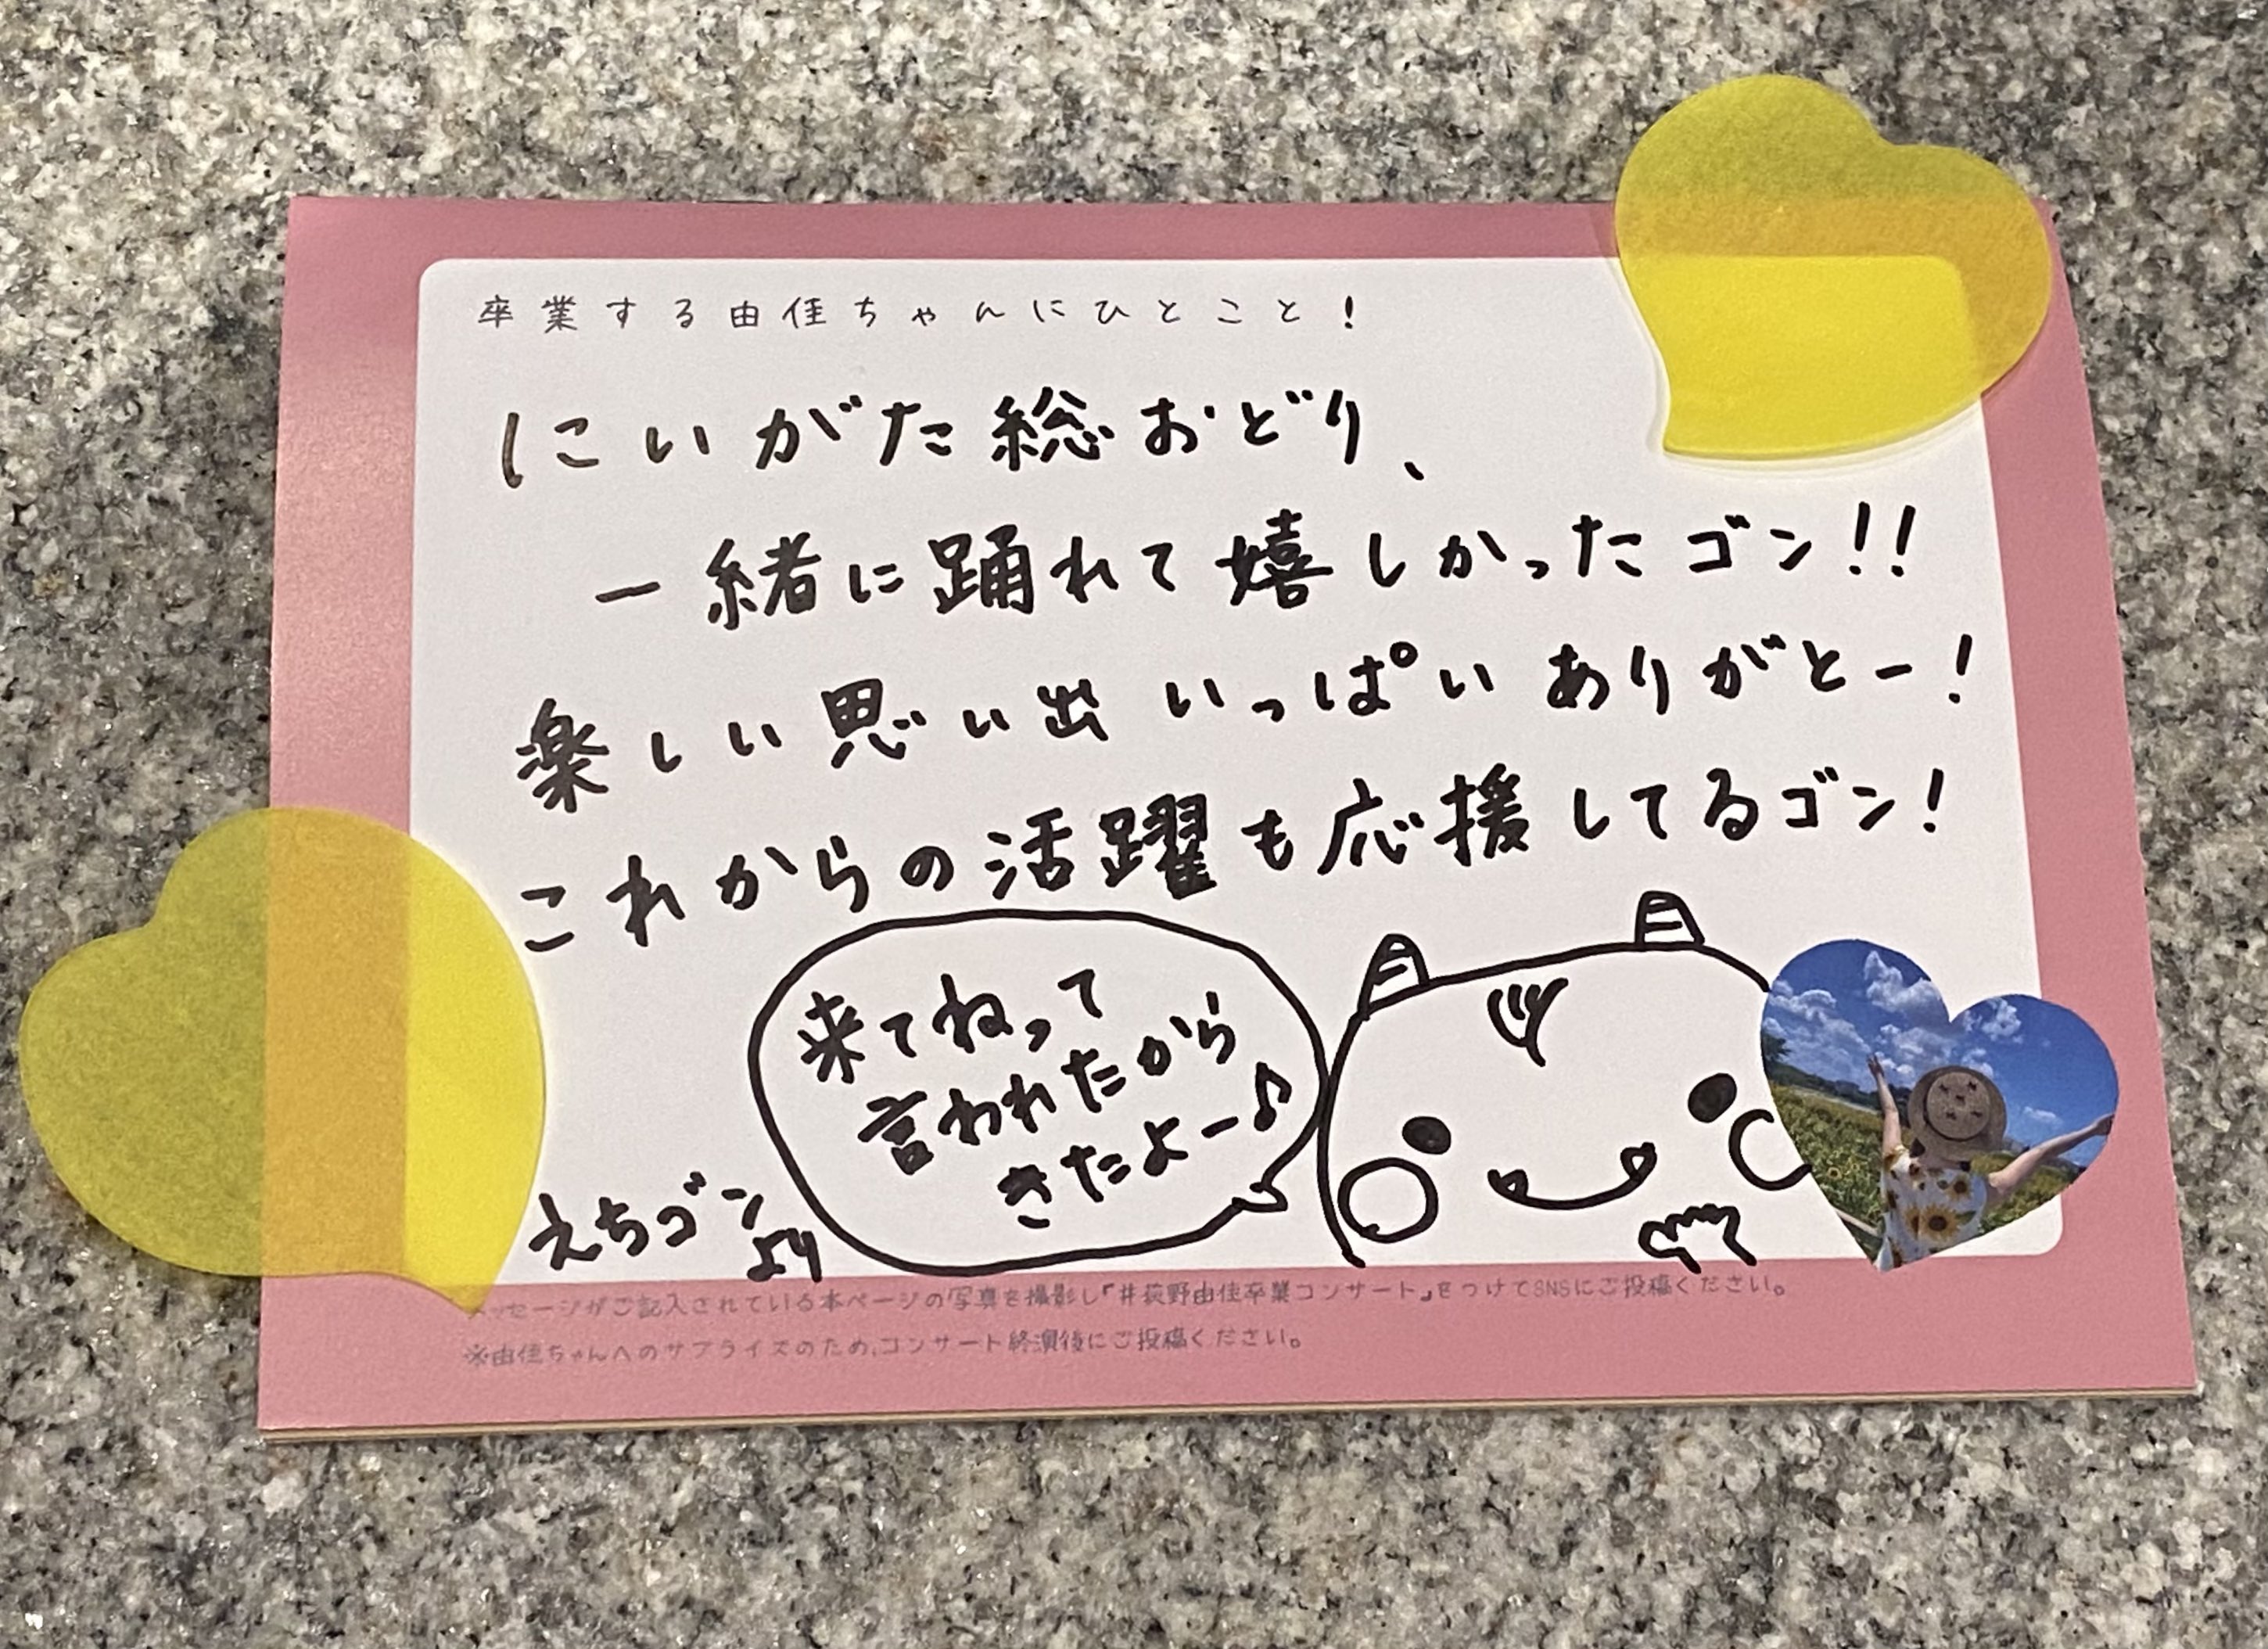 卒業する由佳ちゃんにひとこと！
にいがた総おどり、
一緒に踊れて嬉しかったゴン!!
楽しい思い出いっぱいありがとー！
これからの活躍も応援してるゴン！
来てねって
言われたから
きたよー♪
えちゴン
より
ッセージがご記入されている本ページの写真を撮影し「#荻野由佳卒業コンサート」をつけてSNSにご投稿ください。
※由佳ちゃんへのサプライズのため、コンサート終演後にご投稿ください。